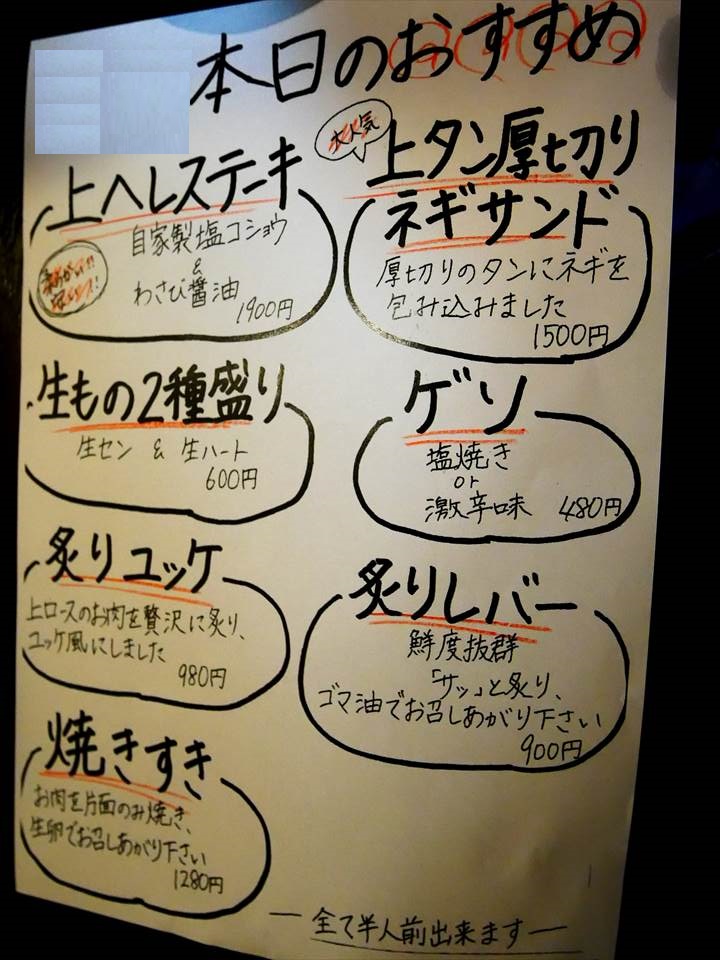 本日のおすすめ
上ヘレステーキ
自家製塩コショウ
&
わさび醤油
1900円
大人気
上タン厚切り
ネギサンド
厚切りのタンにネギを
包み込みました
1500円
生もの2種盛り
生セン & 生ハート
600円
ゲソ
塩焼き
or
激辛味 480円
炙りユッケ
上ロースのお肉を贅沢に炙り、
ユッケ風にしました
980円
炙りレバー
鮮度抜群
「サッ」と炙り、
ゴマ油でお召しあがり下さい
900円
焼きすき
お肉を片面のみ焼き、
生卵でお召しあがり下さい
1280円
― 全て半人前出来ます ―